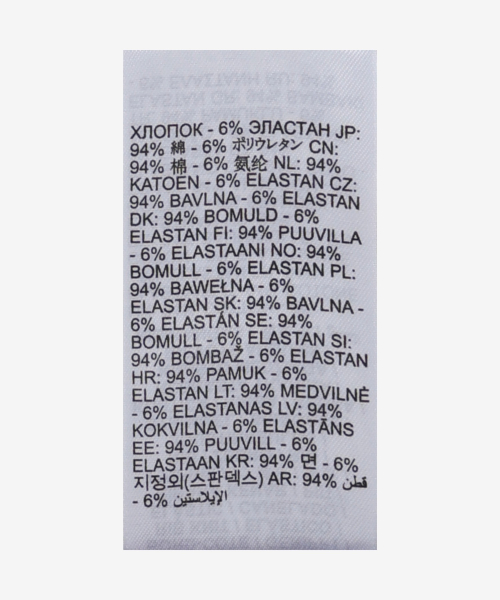 ХЛОПОК - 6% ЭЛАСТАН JP:
94% 綿 - 6% ポリウレタン CN:
94% 棉 - 6% 氨纶 NL: 94%
KATOEN - 6% ELASTAN CZ:
94% BAVLNA - 6% ELASTAN
DK: 94% BOMULD - 6%
ELASTAN FI: 94% PUUVILLA
- 6% ELASTAANI NO: 94%
BOMULL - 6% ELASTAN PL:
94% BAWEŁNA - 6%
ELASTAN SK: 94% BAVLNA -
6% ELASTÁN SE: 94%
BOMULL - 6% ELASTAN SI:
94% BOMBAŽ - 6% ELASTAN
HR: 94% PAMUK - 6%
ELASTAN LT: 94% MEDVILNĖ
- 6% ELASTANAS LV: 94%
KOKVILNA - 6% ELASTĀNS
EE: 94% PUUVILL - 6%
ELASTAAN KR: 94% 면 - 6%
지정외(스판덱스) AR: 94% قطن
- 6% الإيلاستين